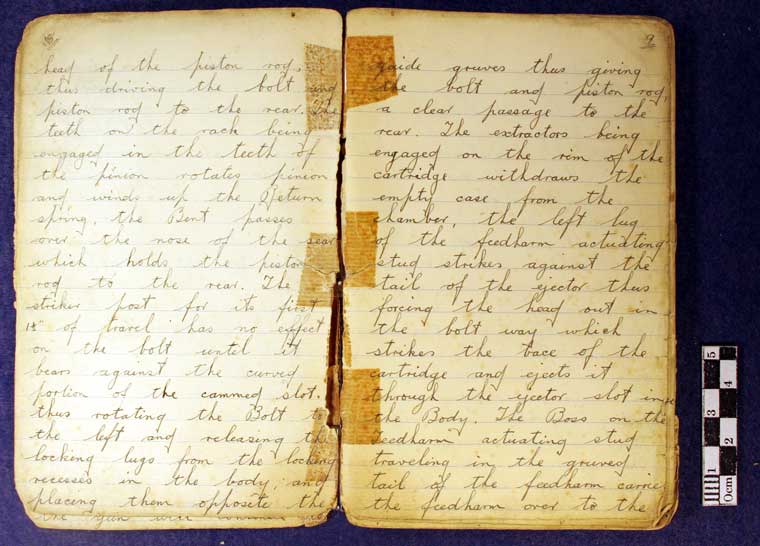 8
head of the piston rod,
thus driving the bolt and
piston rod to the rear. The
teeth on the rack being
engaged in the teeth of
the pinion rotates pinion
and winds up the Return
spring, the Bent passes
over the nose of the sear
which holds the piston
rod to the rear. The
striker post for its first
of travel has no effect
on the bolt until it
bears against the curved
portion of the cammed slot.
thus rotating the Bolt to
the left and releasing the
locking lugs from the locking
recesses in the body, and
placing them opposite the
the gun will
9
guide gruves thus giving
the bolt and piston rod,
a clear passage to the
rear. The extractors being
engaged on the rim of the
cartridge withdraws the
empty case from the
chamber, the left lug
of the feedharm actuating
stud strikes against the
tail of the ejector thus
forcing the head out in
the bolt way which
strikes the base of the
cartridge and ejects it
through the ejector slot in
the Body. The Boss on the
feedharm actuating stud
traveling in the gruved
tail of the feedharm carrie
the feedharm over to the
5
4
3
2
1
0cm